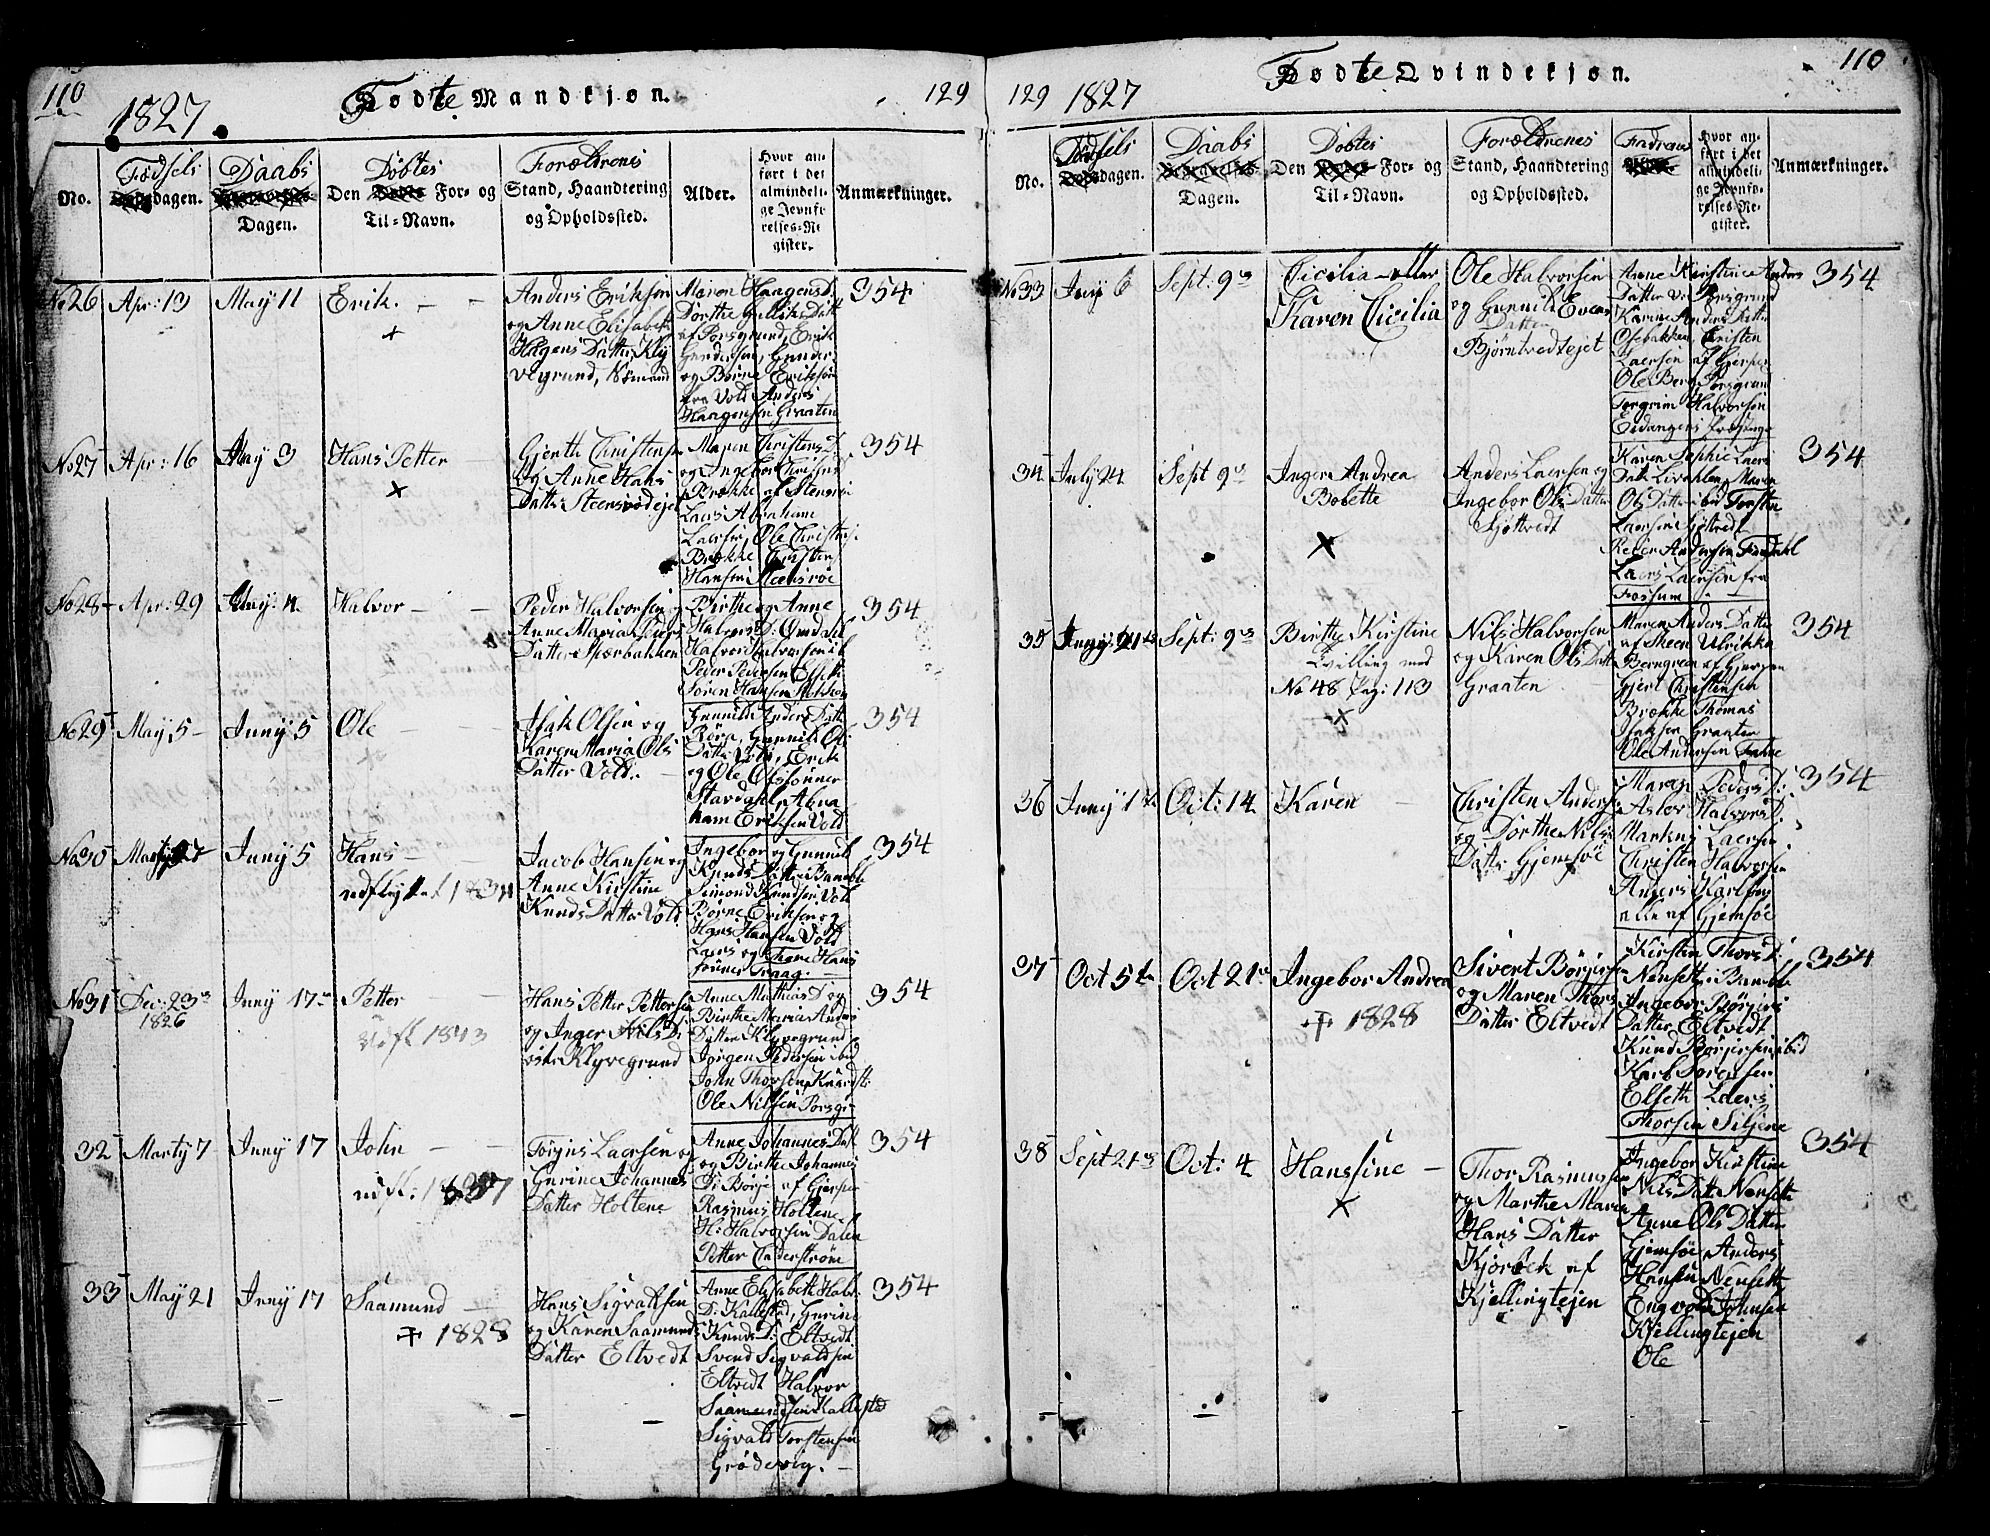 110
1827.
Fødte Mandkjøn.
129
No.
Fødsels
dagen.
Daabs
Dagen.
Døbtes
Den For- og
Til-Navn.
Forældrenes
Stand, Haandtering
og Opholdssted.
Alder.
Hvor an-
ført i det
almindeli-
ge Jevnfø-
relses-Re
gister.
Anmærkninger.
No 26
Apr: 13
May 11
Erik.
Anders Eriksen
og Anne Elisabeth
Hagens Datter Kly
vegrund, Nomand
Maren Haagens D.
Dorthe Gulliks Datt
af Porsgrund, Erik
Gundersen, Gunder
og Børne Eriksøn
fra Vold Anders
Haagensen Graaten
354
No 27
Apr: 16
May 3
Hans Petter
Gjerth Christensen
og Anne Hans
Datter Steensrødejet
Maren Christens D.
og Ingebor Christens
Brække af Stensrøi
Laers Abraham
Laersen, Ole Christens:
Brække Christen
Hansen Steensrøe
354
No 28
Apr: 29
Juny: 4
Halvor
Peder Halvorsen og
Anne Maria Peders
Datter Spærbakken
Birthe og Anne
Halvors D: Omdahl
Halvor Halvorsen ib
Peder Pedersen
Søren Hansen
354
No 29
May 5
Juny 5
Ole
Isak Olsen og
Karen Maria Ols
Datter Vold.
Gunnild Anders Datt
Røra, Gunnild Ols
Datter Vold, Erik
og Ole Olssønner
Stavdahl, Abra
ham Eriksen Vold
354
No 30
Juny 5
Hans
udflyttet 1834
Jacob Hansen og
Anne Kirstine
Knuds Datter Vold
Ingebor og Gunnild
Knuds Datter Bamble
Simond Knudsen Vold
Børne Eriksen og
Hans Hansen Vold
Laers og Thore Hans
sønner Traag.
354
No 31
Dec: 23
1826
Juny 17
Petter
Udfl 1843
Hans Petter Pettersen
og Inger Nils D:
Klyvegrund
Anne Mathias D og
Birthe Maria Anders
Datter Klyvegrund
Jørgen Pedersen ibid
John Thorsen
Ole Nilsen Porsgr
354
32
Marty 7
Juny 17
John
udfl: 1837
Torgius Laersen og
Gurine Johannes
Datter Holtene
Anne Johannes Datt
og Birthe Johannes
D: Borje af Gjerpen
Rasmus Holtene
H: Halvorsen Dalen
Petter Cederstrøm
354
33
May 21
Juny 17
Saamund
1828
Hans Sigvaldsen
og Karen Saamunds
Datter Eltvedt
Anne Elisabeth Halv:
D: Kallestad, Gurine
Knuds D: Eltvedt
Svend Sigvaldsen
Eltvedt Halvor
Saamundsen Kallestad
Sigvald Torstensen
Grødevig.
354
129
1827
Fødte Qvindekjøn.
110
No.
Fødsels
dagen.
Daabs
Dagen.
Døbtes
Den For- og
Til-Navn.
Forældrenes
Stand, Haandtering
og Opholdssted.
Hvor an-
ført i det
almindeli-
ge Jevnfø-
relses-Re-
gister.
Anmærkninger.
No 33
July 6
Sept: 9
Cicilia eller
Karen Cicilia
Ole Halvorsen
og Gunnild Evens
Datter
Bjørntvedtejet
Anne Kirstine Anders
Datter v: Porsgrund
Karine Anders Datter
Osebakken, Christen
Laersen af Gjerpen
Ole Berg Porsgrun
Torgrim Halvorsen
Eidangers Præsteg:
354
34
July 24
Sept 9
Inger Andrea
Bobette
Anders Laersen og
Ingebor Ols Datter
Sjøttvedt
Karen Sophie Laers
Datt Livahlen, Maren
Ols Datter ibid Torsten
Laersen Sjøttvedt
Peder Andersen
Laers Laersen fra
Fossum
354
35
Juny: 21
Sept: 9
Birthe Kirstine
Tvilling med
No 48 Pag: 113
Nils Halvorsen
og Karen Ols Datt
Graaten
Maren Anders Datter
af Skeen Ulrikka
Berngren af Gjerpen
Gjert Christensen
Brække Thomas
Isaksen Graaten
Ole Andersen
354
36
Juny 1
Oct: 14
Karen
Christen Anders:
og Dorthe Nils
Datt: Gjemsøe
Maren Peders D:
Aslov Halvors D
Markus Laersen
Christen Halvorsen
Anders Karlsen
alle af Gjemsøe
354
37
Oct 5te
Oct 21
Ingebor Andrea
1828
Sivert Børjersen
og Maren Thors
Datter Eltvedt
Kirstin Thors D:
Nensett i Bamble
Ingebor Børjers
Datter Eltvedt
Knud Børjersen ibid
Karb Sørensen
Elseth Laers
Thorsen Siljene
354
38
Sept 21
Oct: 4
Hanssine
Thor Rasmussen
og Marthe Maria
Hans Datter
Kjørbek af
Kjellingtejen
Ingebor Kirstine
Nils Datt Nensett
Anne Ols Datter
Gjemsøe Anders
Hansen Nensett
Engvold Johnsen
Kjellingtejen
Ole
354